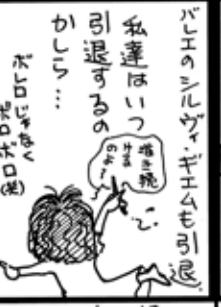 バレエのシルヴィ・ギエムも引退。
私達はいつ
引退するの
かしら…
描き続
ける
のよ〜
ボレロじゃなく
ボロボロ(笑)